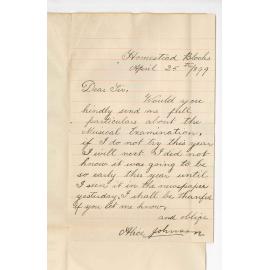 Homestead Blocks
April 25th/99
Dear Sir,
Would you
kindly send me full
particulars about the
Musical Examination,
if I do not try this year
I will next. I did not
know it was going to be
so early this year until
I seen it in the newspaper
yesterday, I shall be thankful
if you let me know,
and oblige
Alice Johnson